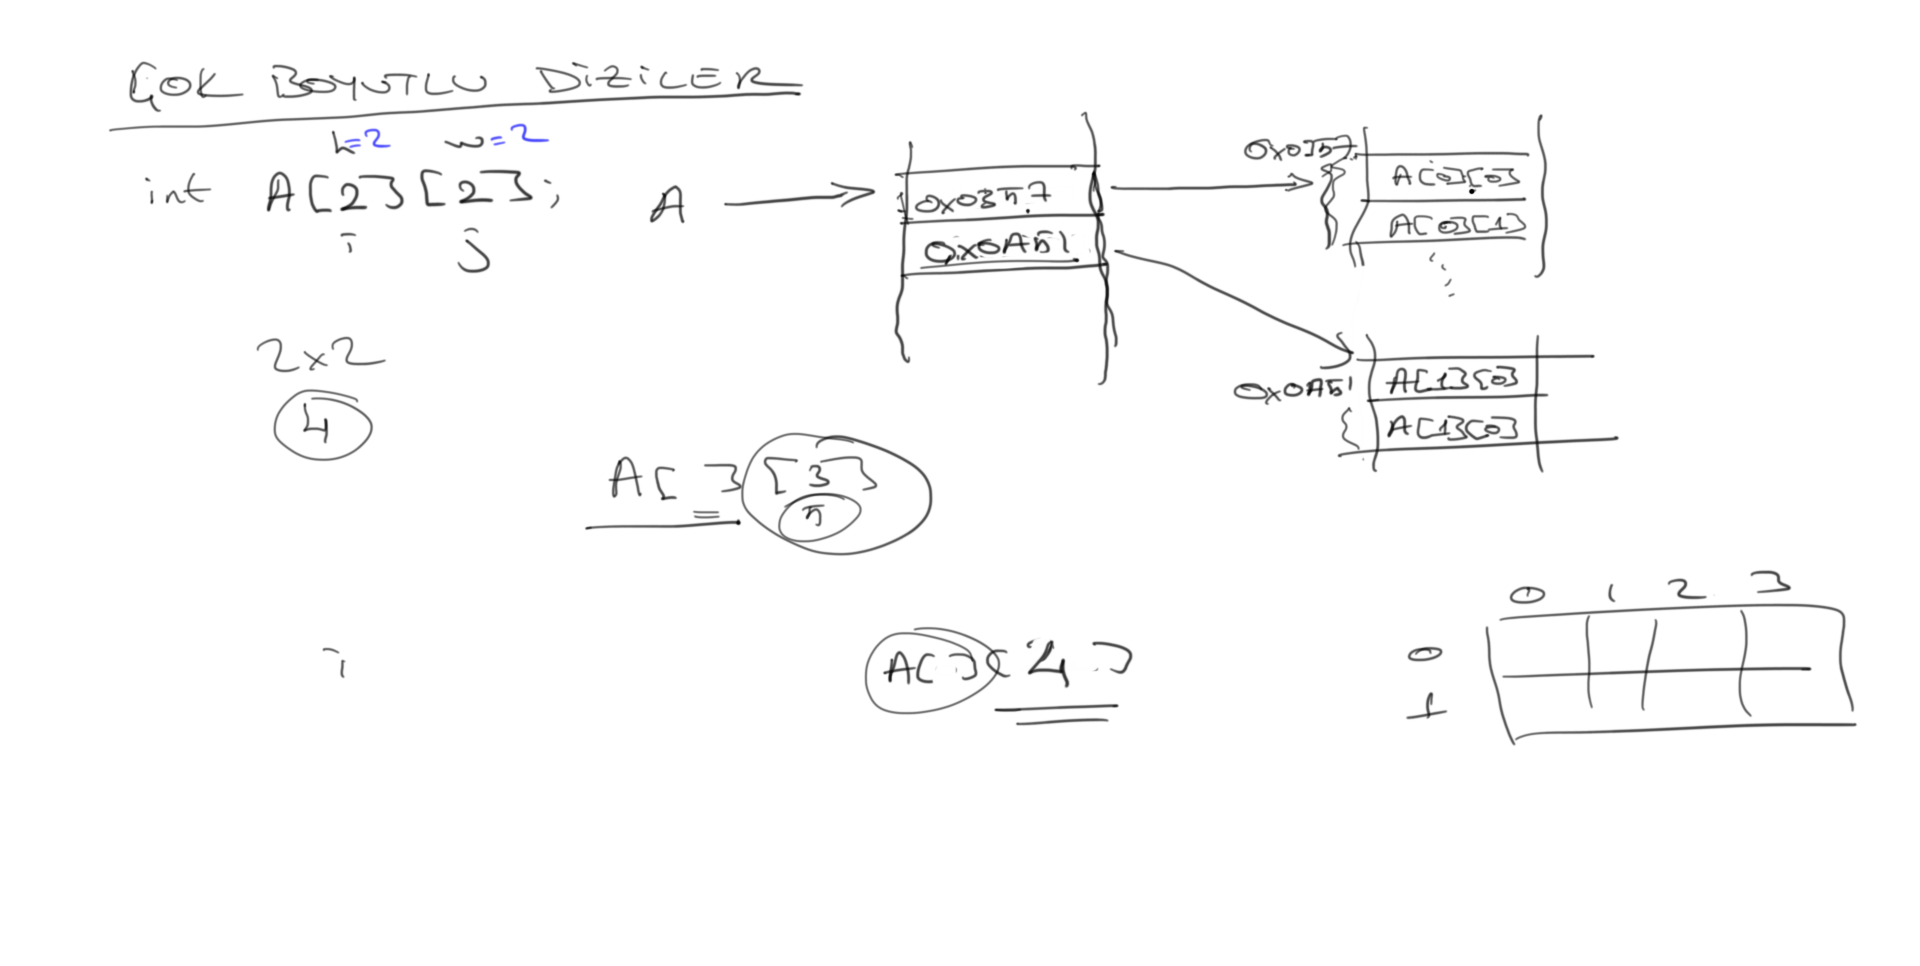 ÇOK BOYUTLU DİZİLER
h=2 w=2
int A[2][2];
i j
A
0x0357
0x0A51
0x0357
A[0][0]
A[0][1]
0x0A51
A[1][0]
A[1][0]
2x2
4
A[ ][3]
5
A[ ][4]
i
0 1 2 3
0
1